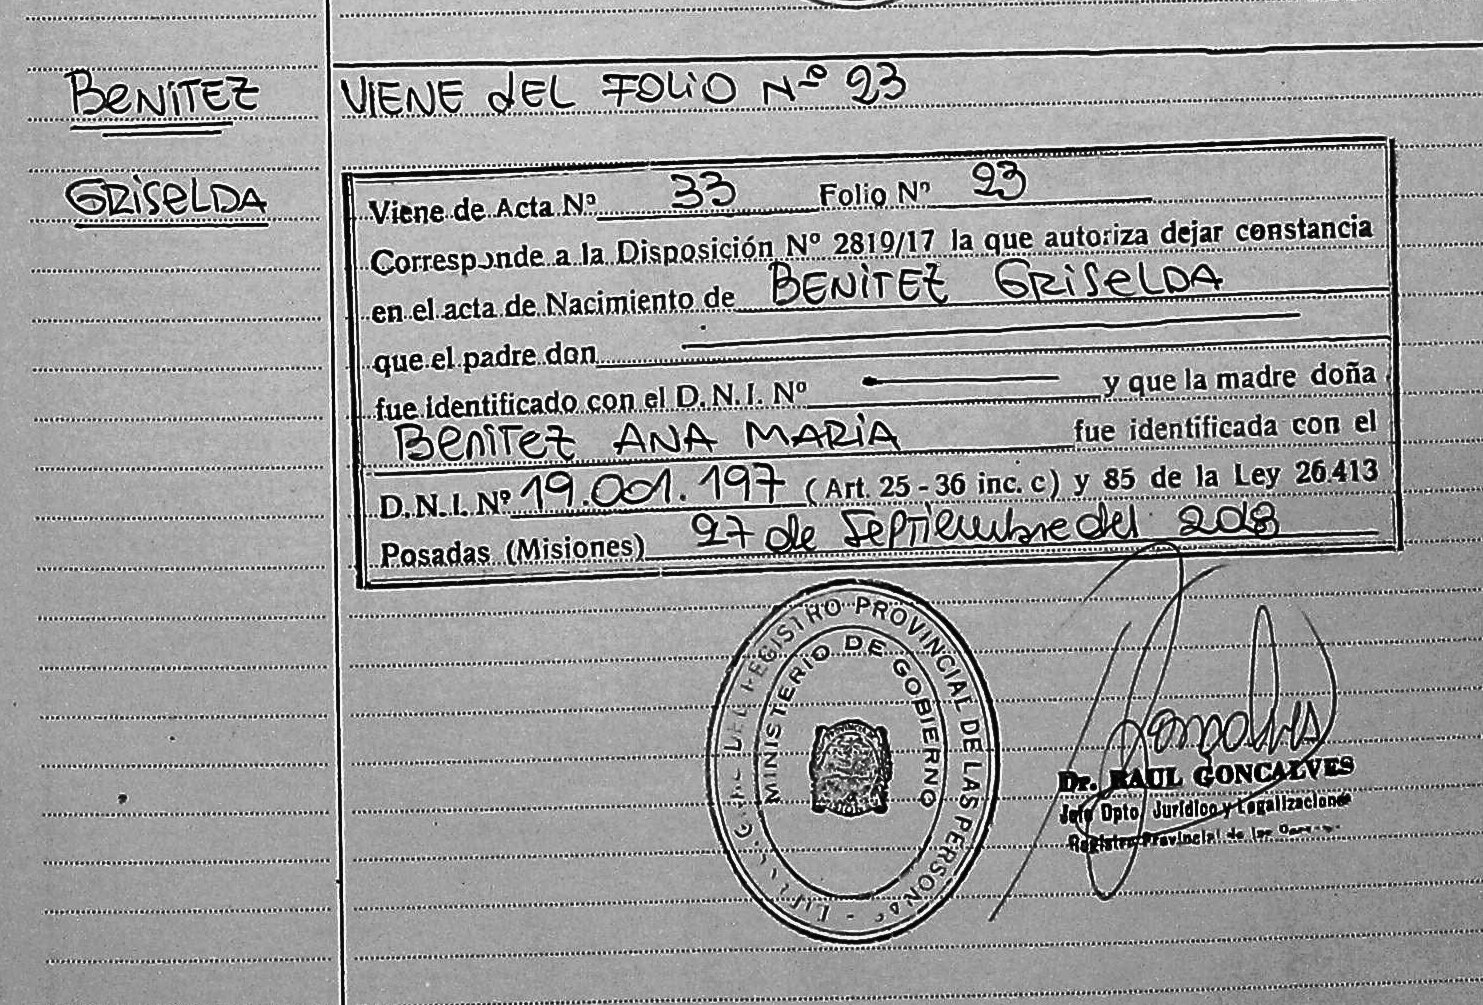 BENITEZ
GRISELDA
VIENE DEL FOLIO Nº 23
Viene de Acta Nº 33 Folio Nº 23
Corresponde a la Disposición Nº 2819/17 la que autoriza dejar constancia
en el acta de Nacimiento de BENITEZ GRISELDA
que el padre don
fue identificado con el D.N.I. Nº y que la madre doña
BENITEZ ANA MARIA fue identificada con el
D.N.I. Nº 19.001.197 (Art. 25 - 36 inc. c) y 85 de la Ley 26.413
Posadas (Misiones) 27 de Septiembre del 2018
DEL REGISTRO PROVINCIAL DE LAS PERSONAS
MINISTERIO DE GOBIERNO
Goncalves
Dr. RAUL GONCALVES
Jefe Dpto. Jurídico y Legalizaciones
Registro Provincial de las